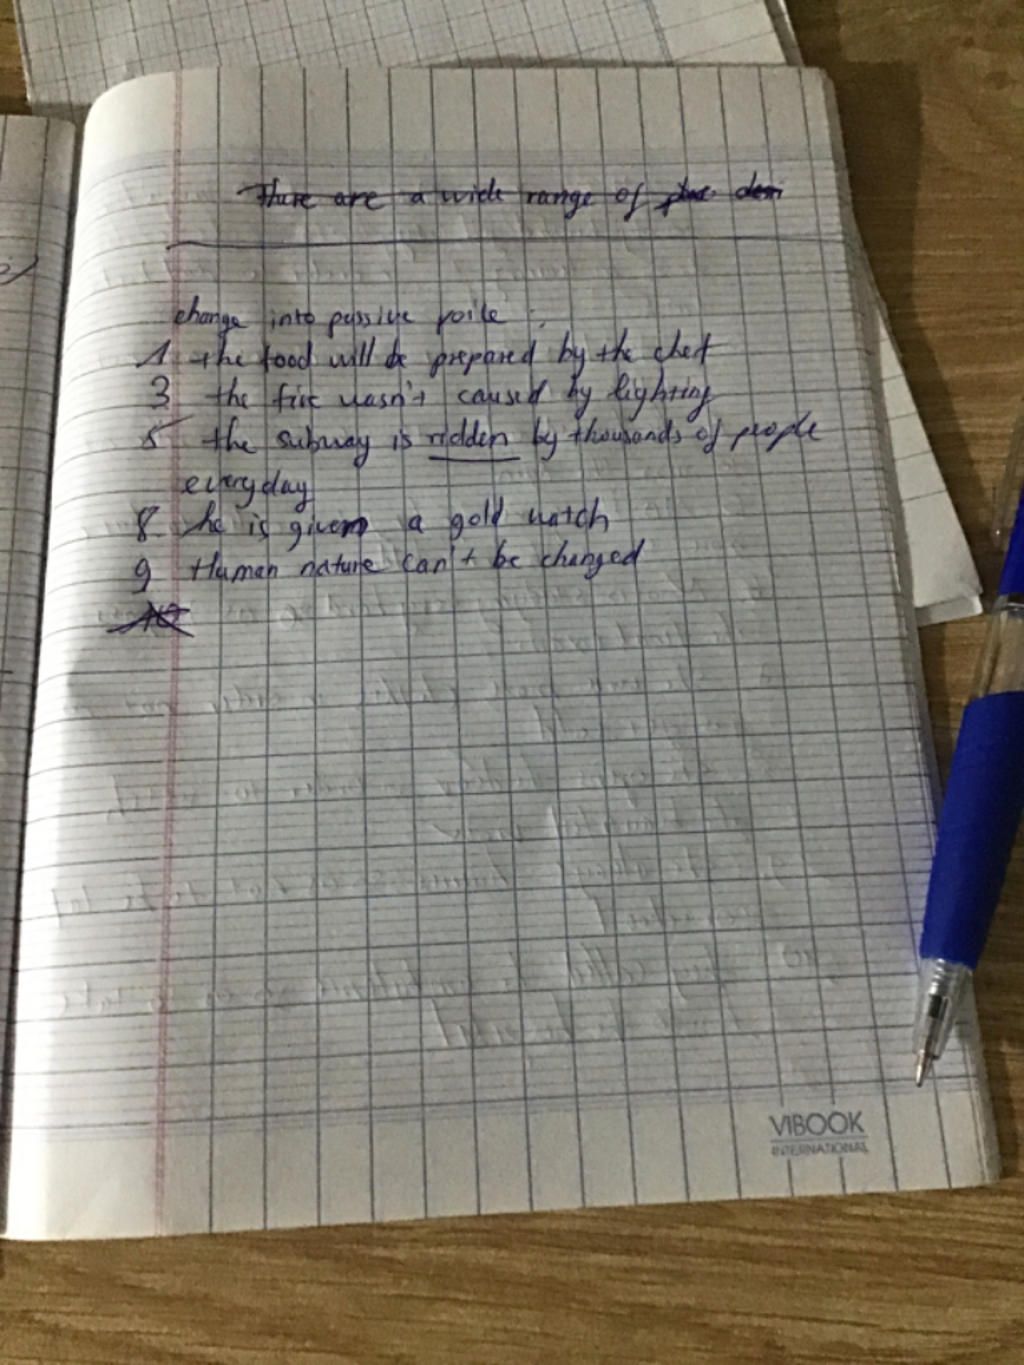 There are a wide range of
change into passive voice :
1 the food will be prepared by the chef
3 the fire wasn't caused by lighting
5 the subway is ridden by thousands of people
everyday
8 he is given a gold watch
9 Human nature can't be changed
10
VIBOOK
INTERNATIONAL